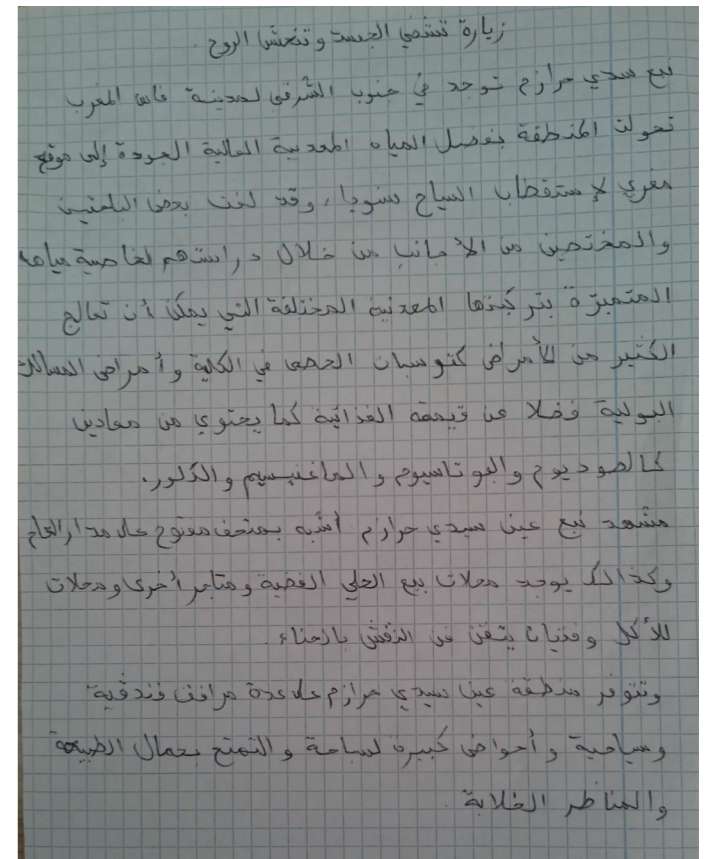 زيارة تشفي الجسد وتنعش الروح.
نبع سدي حرازم توجد في جنوب الشرقي لمدينة فاس المغرب
تحولت المنطقة بفضل المياه المعدنية العالية الجودة إلى موقع
مغري لإستقطاب السياح سنويا، وقد لفت بعض الباحثين
والمختصين من الأجانب من خلال دراستهم لخاصية مياهه
المتميزة بتركيزها المعدنية المختلفة التي يمكن أن تعالج
الكثير من الأمراض كترسبات الحصى في الكلية وأمراض المسالك
البولية فضلا عن قيمته الغذائية كما يحتوي من معادين
كالصوديوم والبوتاسيوم والماغنيسيم والكلور.
مشهد نبع عين سيدي حرازم أشبه بمتحف مفتوح على مدار العام
وكذالك يوجد محلات بيع الحلي الفضية ومتاجر أخرى ومحلات
للأكل وفتيات يتقن فن النقش بالحناء.
وتتوفر منطقة عين سيدي حرازم على عدة مرافق فندقية
وسياحية وأحواض كبيرة لسباحة والتمتع بجمال الطبيعة
والمناظر الخلابة